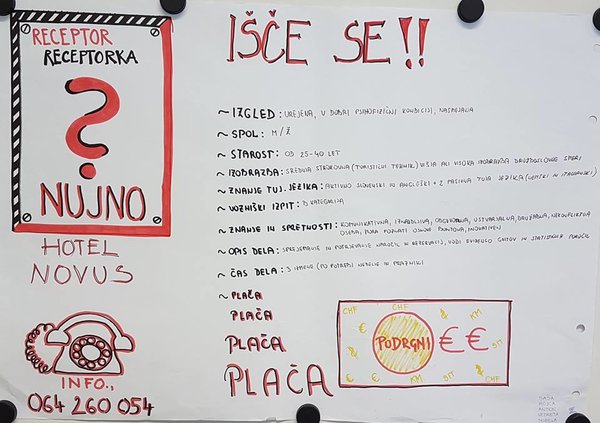 RECEPTOR
RECEPTORKA
?
NUJNO
HOTEL
NOVUS
INFO.,
064 260 054
IŠČE SE!!
~ IZGLED: UREJENA, V DOBRI PSIHOFIZIČNI KONDICIJI, NASMEJANA
~ SPOL: M/Ž
~ STAROST: OD 25-40 LET
~ IZOBRAZBA: SREDNJA STROKOVNA (TURISTIČNI TEHNIK) VIŠJA ALI VISOKA IZOBRAZBA DRUŽBOSLOVNE SMERI
~ ZNANJE TUJ. JEZIKA: AKTIVNO SLOVENSKI IN ANGLEŠKI + 2 PASIVNA TUJA JEZIKA (NEMŠKI IN ITALIJANSKI)
~ VOZNIŠKI IZPIT: B KATEGORIJA
~ ZNANJE IN SPRETNOSTI: KOMUNIKATIVNA, IZNAJDLJIVA, ODGOVORNA, USTVARJALNA, DRUŽABNA, NEKONFLIKTNA
OSEBA, MORA POZNATI OSNOVE BONTONA, INOVATIVEN
~ OPIS DELA: SPREJEMANJE IN POTRJEVANJE NAROČIL IN REZERVACIJ, VODI EVIDENCO GOSTOV IN STATISTIČNA POROČILA
~ ČAS DELA: 3 IZMENE (PO POTREBI NEDELJE IN PRAZNIKI)
~ PLAČA
PLAČA
PLAČA
PLAČA
CHF CHF KM
€
PODRGNI € €
SIT
€ € KM SIT CHF